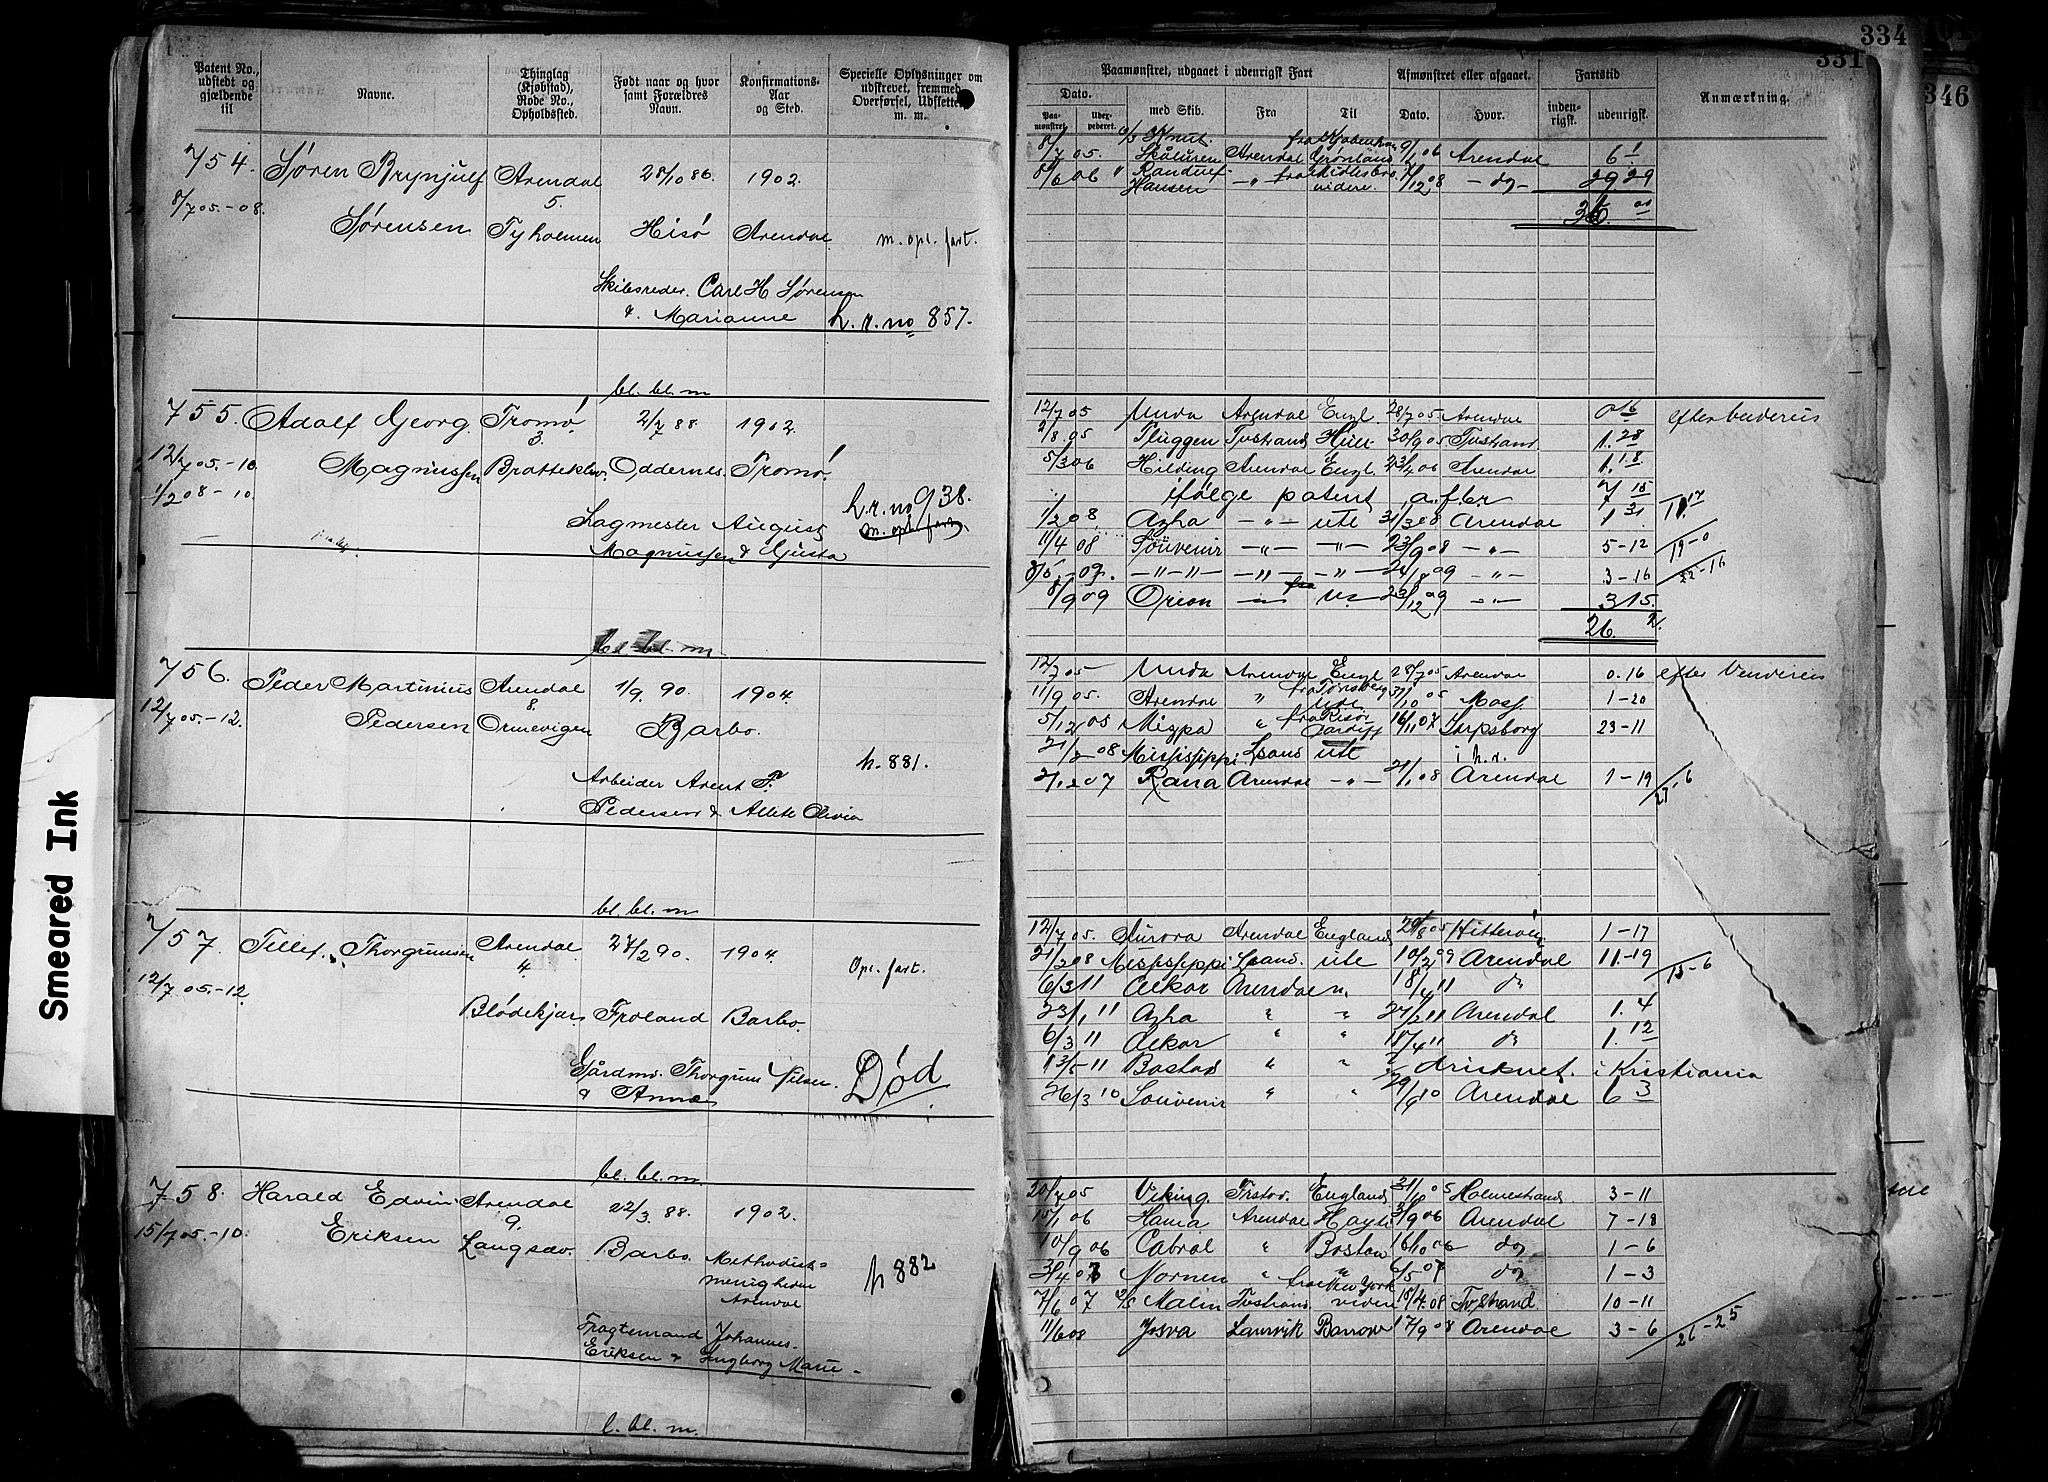 334
331
346
Smeared Ink
Patent No., udstedt og gjældende til
Navne.
Thinglag (Kjøbstad), Rode No., Opholdssted.
Født naar og hvor samt Forældres Navn.
Konfirmations-Aar og Sted.
Specielle Oplysninger om udskrevet, fremmed Overførsel, Udslettet m. m.
754. Søren Brynjulf Arendal 28/10 86 1902.
5.
8/7 05.-08. Sørensen Tyholmen Hisø Arendal m. opl. fart.
Skibsreder. Carl H Sørensen
& Marianne h.r.no 857.
bl. bl. m
755. Adolf Georg Tromø 2/7 88 1902.
3.
12/7 05.-10. Magnussen Bratteklev Oddernes Tromø
1/2 08-10. h.r.no 938.
Lagmester August m. opl. fart.
Magnussen & Gusta
bl. bl. m
756. Peder Martinius Arendal 1/9. 90. 1904.
8.
12/7 05.-12. Pedersen Ormevigen Barbo.
h. 881.
Arbeider Arent P.
Pedersen & Allete Olivia
bl. bl. m
757. Tellef Thorgrimsen Arendal 27/2 90. 1904.
4. Opl. fart.
12/7 05.-12. Blødekjær Froland Barbo.
Gårdmd. Thorgrim Nilsen
& Anne Død
bl. bl. m.
758. Harald Edvin Arendal 22/3. 88. 1902.
9.
15/7 05.-10. Eriksen Langsæv. Barbo. Methodist-
menigheden h 882
Arendal
Fragtemand Johannes
Eriksen & Ingborg Marie
l. bl. m.
Paamønstret, udgaaet i udenrigsk Fart
Afmønstret eller afgaaet.
Fartstid
Anmærkning.
Dato.
Paa-mønstret. Uder-pederet. med Skib. Fra Til Dato. Hvor. inden-rigsk. udenrigsk.
8/7 05. Skåluren Arendal Grønland 9/1 06 Arendal 6 1
8/6 06 Randulf Hansen -"- fra Midlesbro videre. 7/12 08 - do - 29 29
36. 00
12/7 05 Unda Arendal Engl. 28/7 05. Arendal 0 16 efter beviis
2/8. 05 Pluggen Tvestrand Hull 30/9 05 Tvestrand 1. 28
5/3 06 Hilding Arendal Engl. 23/4 06 Arendal 1. 18
ifølge patent afbr 7 15
1/2 08. Azha -"- ute 31/3 08 Arendal 1 31 11. 17
11/4 08 Souvenir -"- -"- 23/9 08 -"- 5-12 19-0
8/5.-09. -"-"- -"- -"- 24/8 09 -"- 3-16 22-16
8/9 09 Orion 23/12 09 -"- 3 15.
26. 2.
12/7 05 Unda Arendal Engl 28/7 05 Arendal 0. 16 efter
11/9 05. Arendal " fra Tønsberg ute 31/10 05 Moss 1-20
5/12 05 Mizpa " fra Risør Cardiff 16/11 07 Sarpsborg 23-11
21/2 08 Missisippi Lsand ute i h.r.
2/12 07 Rana Arendal -"- 21/1 08 Arendal 1-19
12/7 05. Aurora Arendal England 29/8 05 Hitterøen 1-17
21/2 08 Missisippi Lsand. ute 10/2 09 Arendal 11.-19 13-6
6/3 11 Alkor Arendal u. 18/4 11 do
23/1 11 Azha " " 27/2 11 Arendal 1. 4
6/3 11 Alkor " " 18/4 11 do 1. 12
13/5-11 Bastad " " druknet. i Kristiania
26/3 10 Souvenir " " 29/9 10 Arendal 6 3
20/7 05 Viking. Frstad. England 31/10 05 Holmestrand 3-11
15/1 06 Hania Arendal Hayti 3/9 06 Arendal 7-18
10/9 06 Cabral " Boston 16/10 06 do 1-6
3/4 07 Nornen " " 6/5 07 do 1-3
7/6 07 D/S Malin Tvestrand fra New York viden 18/4. 08 Tvestrand. 10-11
11/6 08 Josva Laurvik Barrow 17/9 08 Arendal 3-6 26-25